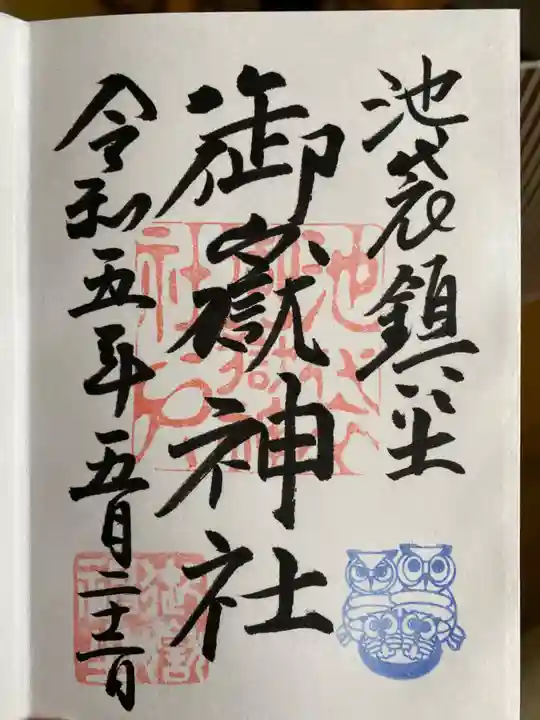 池袋鎮坐
御嶽神社
令和五年五月二十二日